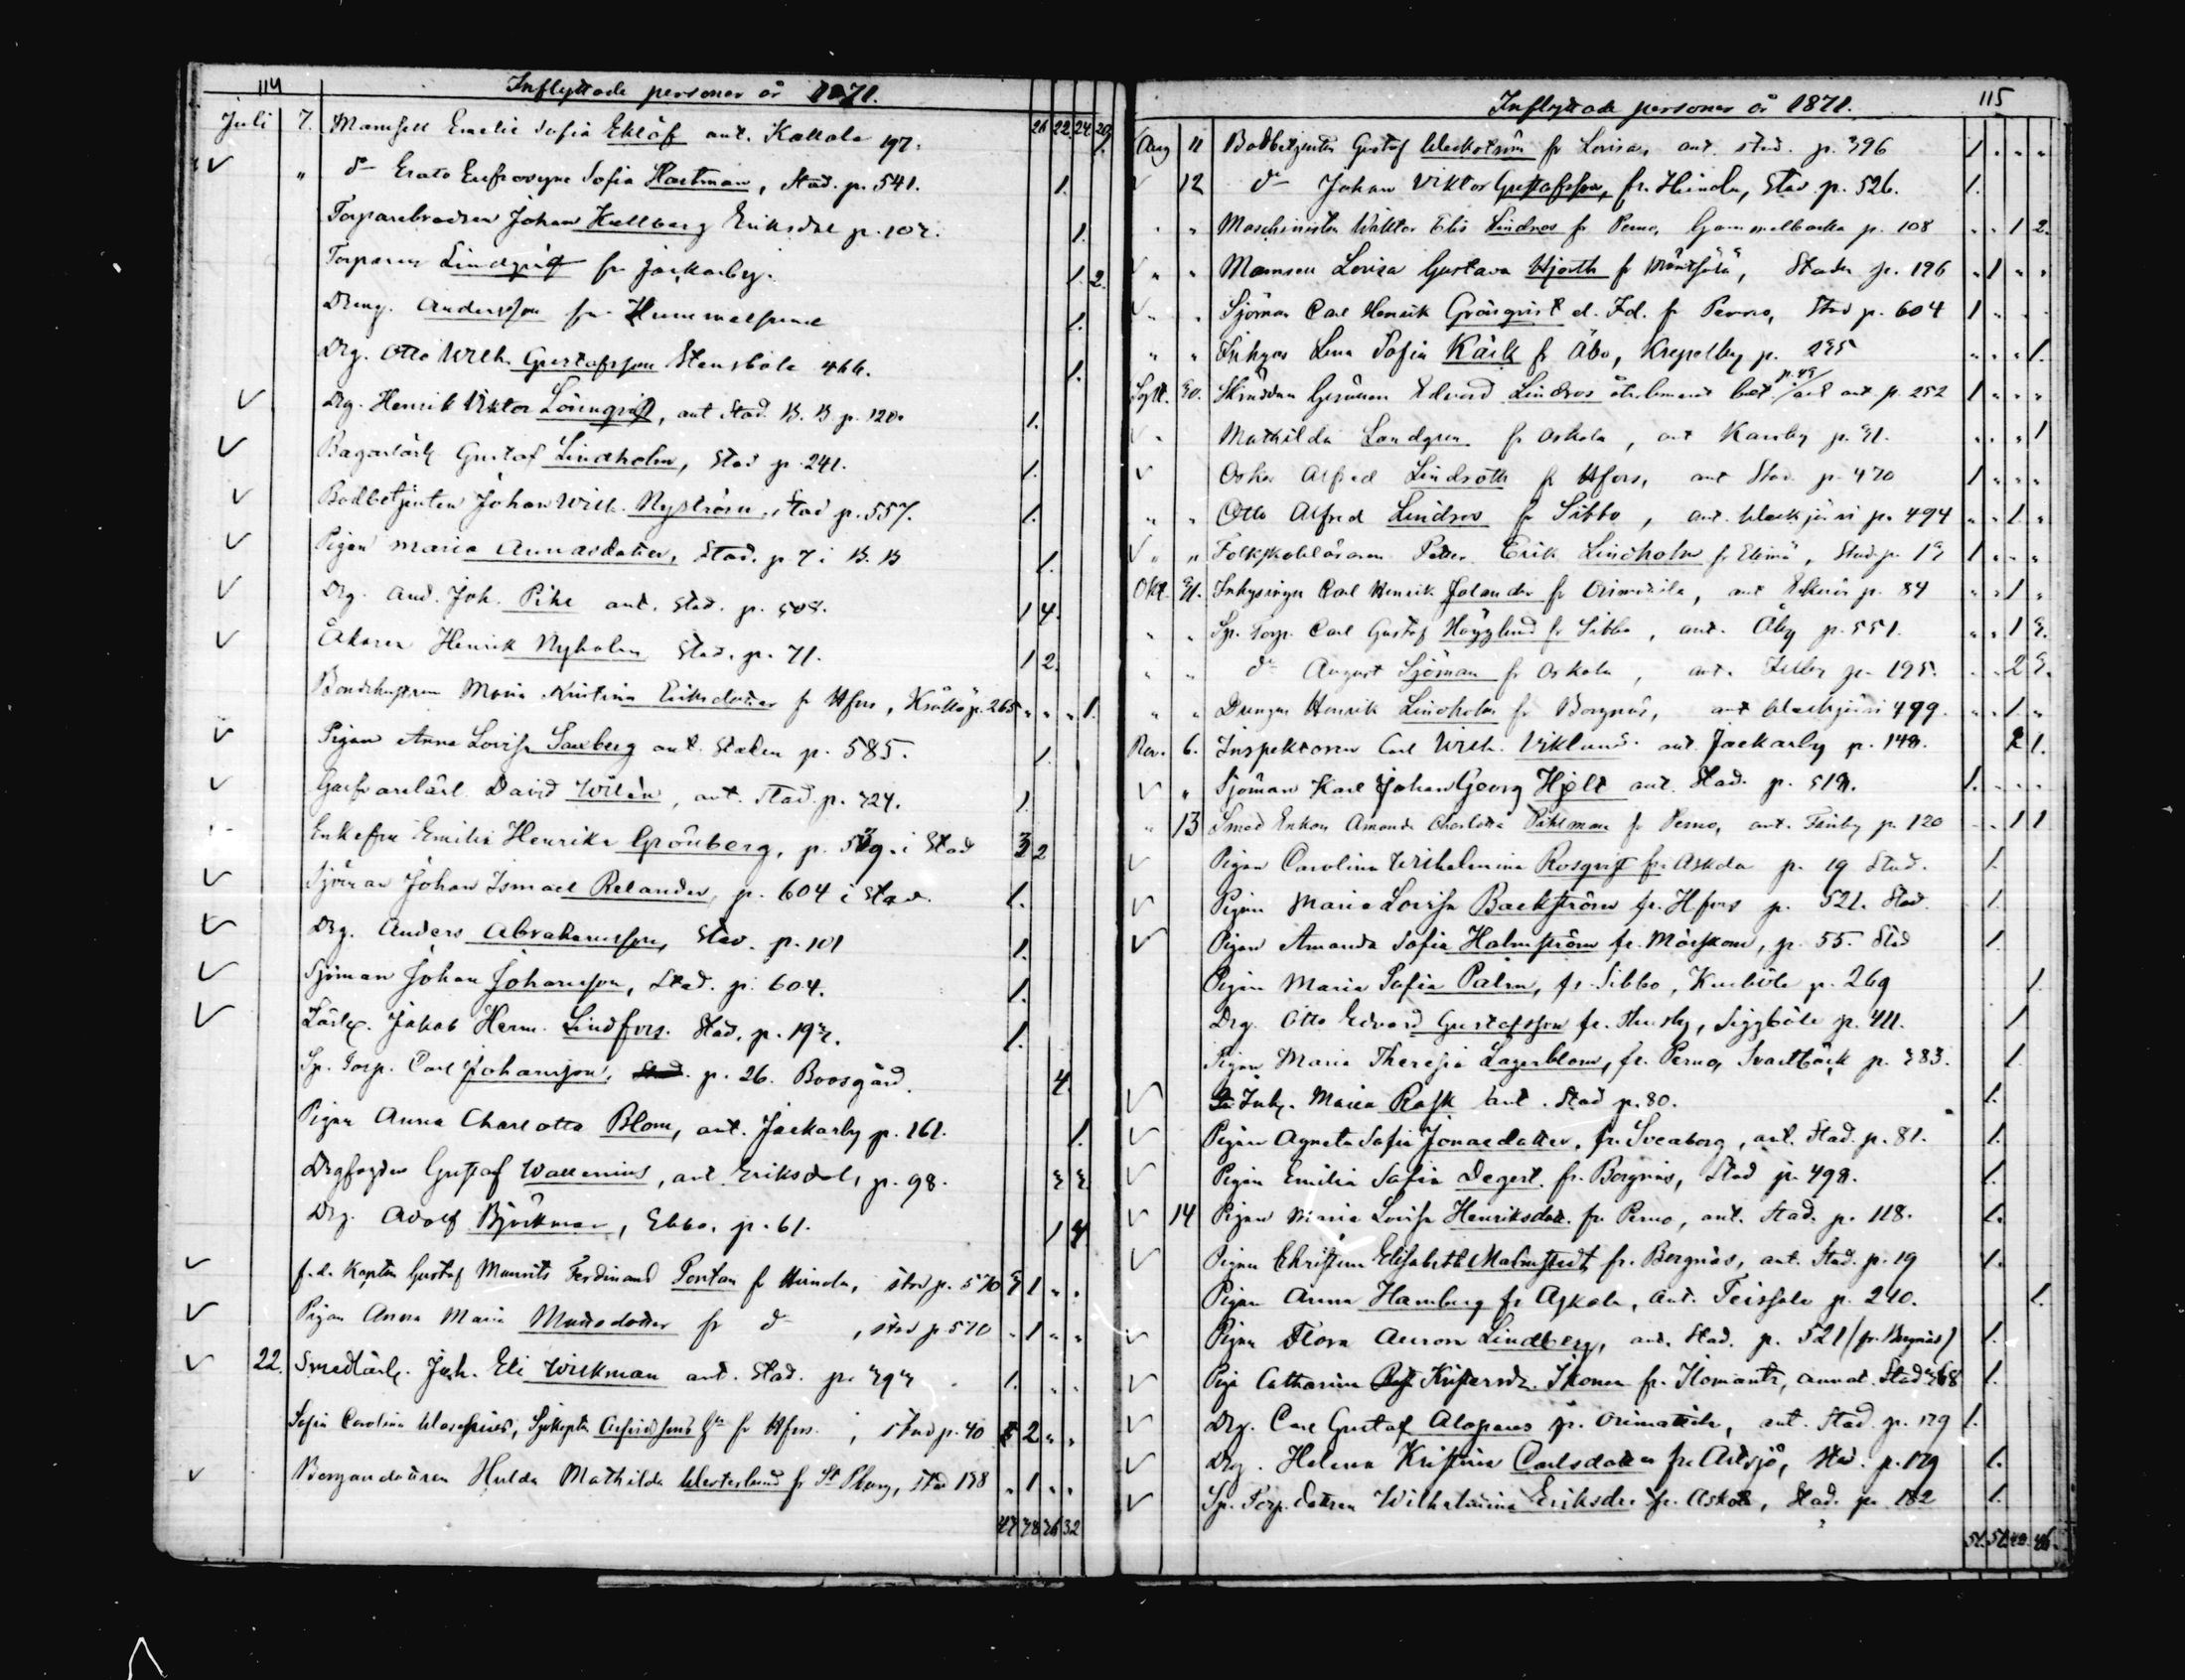 114
Inflyttade personer år 1871.
26 22 24 29
Juli 7. Mamsell Emelie Sofia Eklöf ant. Kallola 197. 1.
" do Erato Eufrosyne Sofia Hartman, Stad. p. 541. 1.
Johan Kullberg Eriksdal p. 107. 1.
Torparen Lindqvist fr Jackarby. 1. 2.
Dreng. Andersson fr. Hummelsund 1.
Drg. Otto Wilh. Gustafsson Stensböle 466. 1.
Drg. Henrik Viktor Lönnqvist, ant Stad. B. B. p. 120. 1.
Bagarlärl Gustaf Lindholm, Stad p. 241. 1.
Bodbetjenten Johan Wilh. Nyström, Stad p. 557. 1.
Pigan Maria Annasdotter, Stad. p. 7 i B. B 1.
Drg. And. Joh. Pihl ant. Stad. p. 508. 1 4.
Åkaren Henrik Nyholm Stad. p. 71. 1 2.
Maria Kristina Eriksdotter fr Hfors, Kråkö p. 265 " " " 1.
Pigan Anna Lovisa Saxberg ant. Staden p. 585. 1.
Garfvarelärl David Wilén, ant. Stad. p. 324. 1.
Enkefru Emilia Henrika Grönberg, p. i Stad 3 2
Sjöman Johan Ismael Relander, p. 604 i Stad. 1.
Drg. Anders Abrahamsson, Stad. p. 101 1.
Sjöman Johan Johansson, Stad. p. 604. 1.
Lärlg. Jakob Herm. Lindfors. Stad. p. 193. 1.
Sp. Torp. Carl Johansson, p. 26. Boosgård. 4.
Pigan Anna Charlotta Blom, ant. Jackarby p. 161. 1.
Drgfogden Gustaf Wallenius, ant Eriksdal, p. 98. 3 3.
Drg. Adolf Björkman, Ebbo, p. 61. 1 4.
f.d. Kapten Gustaf Maurits Ferdinand Pontan fr Heinola, stad p. 570 3 1 " "
Pigan Anna Maria Mattsdotter fr do, stad p 570 " 1 " "
22. Smedlärlg. Joh. Eli Wickman ant. Stad. p. 393 1. " "
Sofia Carolina fr Hfors, stad p. 40 2 " "
Hulda Mathilda Westerlund fr St Pburg, stad 198 " 1 " "
47 38 36 32
115
Inflyttade personer år 1871.
Aug 11 Bodbetjenten Gustaf Weckström fr Lovisa, ant. stad. p. 396 1 " " "
12 do Johan Viktor Gustafsson, fr. Heinola, Stad p. 526. 1.
" " Maschinisten Wiktor Elis Lindros fr Perno, Gammelbacka p. 108 " " 1 2.
" " Mamsell Lovisa Gustava Hjorth fr Mäntsälä, Staden p. 196 " 1 " "
" " Sjöman Carl Henrik Gränqvist fr Perno, Stad p. 604 1 " " "
" " Lena Sofia Käck fr Åbo, Kreppelby p. 295 " " " 1.
Sept. 30. Edvard Lindros p. 252 1 " " "
Mathilda Landgren fr Askola, ant Karsby p. 31. " " " 1
Oskar Alfred Lindroth fr Hfors, ant Stad p. 470 1 " " "
" " Otto Alfred Lindros fr Sibbo, ant. Weckjärvi p. 494 " " 1 "
" " Folkskoleläraren Petter Erik Lindholm fr Elimä, Stad p. 19 1 " " "
Okt. 31. Inhysingen Carl Henrik Jolander fr Orimattila, ant p. 84 " " 1 "
" " Sp. Torp. Carl Gustaf Hägglund fr Sibbo, ant. Åby p. 551. " " 1 3.
" " do August Sjöman fr Askola, ant. p. 195. " " 2 3.
" " Drengen Henrik Lindholm fr Borgnäs, ant Weckjärvi 499. " " 1. "
Nov. 6. Inspektoren Carl Wilh. Viklund ant. Jackarby p. 148. 2 1.
" Sjöman Karl Johan Georg Hjelt ant. Stad. p. 1. " " "
" 13 Smed Enkan Amanda Charlotta Pihlman fr Perno, ant. p. 120 " " 1 1
Pigan Carolina Wilhelmina Rosqvist fr. Askola p. 19 Stad. 1.
Pigan Maria Lovisa Backström fr. Hfors p. 521. Stad. 1.
Pigan Amanda Sofia Holmström fr. Mörskom, p. 55. Stad 1.
Pigan Maria Sofia Palm, fr. Sibbo, p. 269 1.
Drg. Otto Edvard Gustafsson fr. Thusby, Siggböle p. 411. 1
Pigan Maria Theresia Lagerblom, fr. Perno, Svartbäck p. 383. 1.
Inh. Maria Rask ant. Stad p. 80. 1.
Pigan Agneta Sofia Jonasdotter, fr. Sveaborg, ant. Stad. p. 81. 1.
Pigan Emilia Sofia Degert. fr. Borgnäs, Stad p. 498. 1.
14 Pigan Maria Lovisa Henriksdott. fr. Perno, ant. Stad. p. 118. 1.
Pigan Christina Elisabeth Malmstedt, fr. Borgnäs, ant. Stad. p. 19 1.
Pigan Anna Hamberg fr Askola, ant. Teissala p. 240. 1.
Pigan Flora Aurora Lindberg, ant. Stad. p. 521 (fr. Borgnäs) 1.
Piga Catharina Ikonen fr. Ilomants, annot. Stad 368 1.
Drg. Carl Gustaf Alopaeus fr. Orimattila, ant. Stad. p. 179 1.
Drg. Helena Kristina Carlsdotter fr. Artsjö, Stad. p. 179 1.
Sp. Torp. dottren Wilhelmina Eriksdr fr. Askola, Stad. p. 182 1.
51. 51. 40. 46.